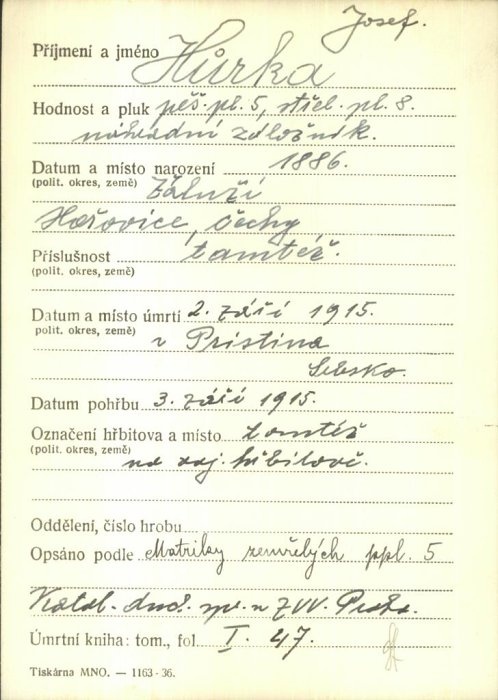 Josef.
Příjmení a jméno Hůrka
Hodnost a pluk pěš. pl. 5, střel. pl. 8.
náhradní záložník.
Datum a místo narození 1886.
(polit. okres, země) Záluží
Hořovice, Čechy
Příslušnost tamtéž.
(polit. okres, země)
Datum a místo úmrtí 2. září 1915.
polit. okres, země) v Pristina
Srbsko.
Datum pohřbu 3. září 1915.
Označení hřbitova a místo tamtéž
(polit. okres, země)
na voj. hřbitově.
Oddělení, číslo hrobu
Opsáno podle Matriky zemřelých ppl. 5
Katol. duch. spr. u ZVV. Praha.
Úmrtní kniha: tom., fol. I. 47.
Tiskárna MNO. — 1163-36.